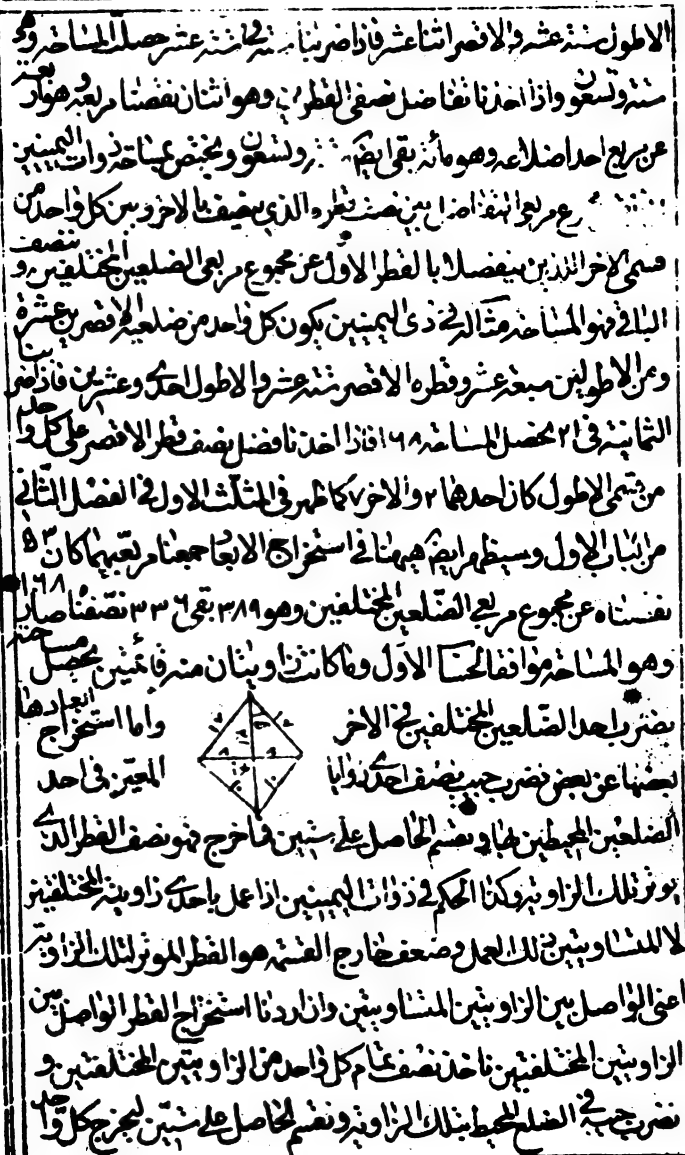 الاطول ستة عشر والاقصر اثنا عشر فاذا ضربنا ستة فى ستة عشر حصلت المساحة وهى
ستة وتسعون واذا اخذنا تفاضل نصفى القطرين وهو اثنان نقصنا مربعه وهو اربعة
عن مربع احد اضلاعه وهو مائة بقى ايضا ستة وتسعون ويختص بمساحة ذوات اليمينين
مربعى التفاضل بين نصف قطره الذى ينصف بالاخر وبين كل واحد من
قسمى الاخر اللذين ينفصلا بالقطر الاول عن مجموع مربعى الضلعين المختلفين وننصف
الباقى فهو المساحة مثاله فى ذى اليمينين يكون كل واحد من ضلعيه الاقصرين عشرة
ومن الاطولين سبعة عشر وقطره الاقصر ستة عشر والاطول احدى وعشرين فاذا ضربنا
الثمانية فى ٢١ يحصل المساحة ١٦٨ فاذا اخذنا فضل نصف قطر الاقصر على كل واحد
من قسمى الاطول كان احدهما ٢ والاخر ٧ كما ظهر فى المثلث الاول فى الفصل الثانى
من الباب الاول وسيظهر ايضا هيهنا فى استخراج الابعاد جمعنا مربعيهما كان ٥٣
نقصناه عن مجموع مربعى الضلعين المختلفين وهو ٣٨٩ بقى ٣٣٦ نصفناه صار ١٦٨
وهو المساحة موافقا لحساب الاول وما كانت زاويتان منه قائمتين يحصل مساحته
بضرب احد الضلعين المختلفين فى الاخر واما استخراج ابعادها
بعضها عن بعض نضرب جيب نصف احدى زوايا المعين فى احد
الضلعين المحيطين بها ونقسم الحاصل على ستين فما خرج فهو نصف القطر الذى
يوتر تلك الزاوية وكذا الحكم فى ذوات اليمينين اذا عمل باحدى زاويتيه المختلفتين
لا المتساويتين ذلك العمل وضعف خارج القسمة هو القطر الموتر لتلك الزاوية
اعنى الواصل بين الزاويتين المتساويتين وان اردنا استخراج القطر الواصل بين
الزاويتين المختلفتين ناخذ نصف تمام كل واحد من الزاويتين المختلفتين و
نضرب جيبه فى الضلع المحيط بتلك الزاوية ونقسم الحاصل على ستين ليخرج كل واحد